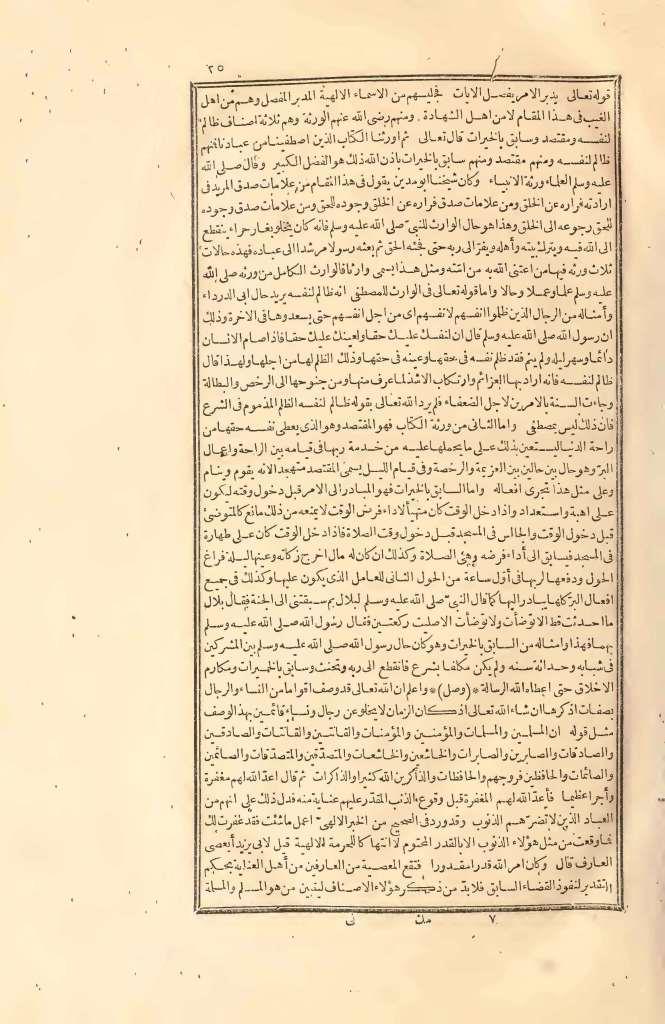 ٢٥
قوله تعالى يدبر الامر يفصل الايات فجليسهم من الاسماء الالهية المدبر المفصل وهم من اهل
الغيب فى هذا المقام لا من اهل الشهادة ومنهم رضى الله عنهم الورثة وهم ثلاثة اصناف ظالم
لنفسه ومقتصد وسابق بالخيرات قال تعالى ثم اورثنا الكتاب الذين اصطفينا من عبادنا فمنهم
ظالم لنفسه ومنهم مقتصد ومنهم سابق بالخيرات باذن الله ذلك هو الفضل الكبير وقال صلى الله
عليه وسلم العلماء ورثة الانبياء وكان شيخنا ابو مدين يقول فى هذا المقام من علامات صدق المريد فى
ارادته فراره عن الخلق ومن علامات صدق فراره عن الخلق وجوده للحق ومن علامات صدق وجوده
للحق رجوعه الى الخلق وهذا هو حال الوارث للنبىّ صلى الله عليه وسلم فانه كان يخلو بغار حراء ينقطع
الى الله فيه ويترك بيته وأهله ويفرّ الى ربه حتى فجئه الحق ثم بعثه رسولا مرشدا الى عباده فهذه حالات
ثلاث ورثه فيها من اعتنى الله به من امّته ومثل هذا يسمى وارثا فالوارث الكامل من ورثه صلى الله
عليه وسلم علما وعملا وحالا واما قوله تعالى فى الوارث للمصطفى انه ظالم لنفسه يريد حال ابى الدرداء
وأمثاله من الرجال الذين ظلموا انفسهم لانفسهم اى من اجل انفسهم حتى يسعدوها فى الاخرة وذلك
ان رسول الله صلى الله عليه وسلم قال ان لنفسك عليك حقا ولعينك عليك حقا فاذا صام الانسان
دائما وسهر ليله ولم ينم فقد ظلم نفسه فى حقها وعينه فى حقها وذلك الظلم لها من اجلها ولهذا قال
ظالم لنفسه فانه اراد بها العزائم وارتكاب الاشدّ لما عرف منها ومن جنوحها الى الرخص والبطالة
وجاءت السنة بالامرين لاجل الضعفاء فلم يرد الله تعالى بقوله ظالم لنفسه الظلم المذموم فى الشرع
فان ذلك ليس بمصطفى واما الثانى من ورثة الكتاب فهو المقتصد وهو الذى يعطى نفسه حقها من
راحة الدنيا ليستعين بذلك على ما يحملها عليه من خدمة ربها فى قيامه بين الراحة واعمال
البرّ وهو حال بين حالين بين العزيمة والرخصة وفى قيام الليل يسمى المقتصد متهجدا لانه يقوم وينام
وعلى مثل هذا تجرى افعاله واما السابق بالخيرات فهو المبادر الى الامر قبل دخول وقته ليكون
على اهبة واستعداد واذا دخل الوقت كان متهيأ لاداء فرض الوقت لا يمنعه من ذلك مانع كالمتوضئ
قبل دخول الوقت والجالس فى المسجد قبل دخول وقت الصلاة فاذا دخل الوقت كان على طهارة
فى المسجد فيسابق الى أداء فرضه وهى الصلاة وكذلك ان كان له مال اخرج زكاته وعينها ليلة فراغ
الحول ودفعها لربها فى أوّل ساعة من الحول الثانى للعامل الذى يكون عليها وكذلك فى جميع
افعال البرّ كلها يبادر اليها كما قال النبىّ صلى الله عليه وسلم لبلال بم سبقتنى الى الجنة فقال بلال
ما احدثت قط الا توضأت ولا توضأت الا صليت ركعتين فقال رسول الله صلى الله عليه وسلم
بهما فهذا وامثاله من السابق بالخيرات وهو كان حال رسول الله صلى الله عليه وسلم بين المشركين
فى شبابه وحداثة سنه ولم يكن مكلفا بشرع فانقطع الى ربه وتحنث وسابق بالخيرات ومكارم
الاخلاق حتى اعطاه الله الرسالة *(وصل)* واعلم ان الله تعالى قد وصف اقواما من النساء والرجال
بصفات اذكرها ان شاء الله تعالى اذ كان الزمان لا يخلو عن رجال ونساء قائمين بهذا الوصف
مثل قوله ان المسلمين والمسلمات والمؤمنين والمؤمنات والقانتين والقانتات والصادقين
والصادقات والصابرين والصابرات والخاشعين والخاشعات والمتصدّقين والمتصدّقات والصائمين
والصائمات والحافظين فروجهم والحافظات والذاكرين الله كثيرا والذاكرات ثم قال اعدّ الله لهم مغفرة
وأجرا عظيما فأعدّ الله لهم المغفرة قبل وقوع الذنب المقدّر عليهم عناية منه فدل ذلك على انهم من
العباد الذين لا تضرّهم الذنوب وقد ورد فى الصحيح من الخبر الالهىّ اعمل ما شئت فقد غفرت لك
فما وقعت من مثل هؤلاء الذنوب الا بالقدر المحتوم لا انتهاكا للحرمة الالهية قيل لابى يزيد أيعصى
العارف قال وكان امر الله قدرا مقدورا فتقع المعصية من العارفين من أهل العناية بحكم
التقدير لنفوذ القضاء السابق فلا بدّ من ذكر هؤلاء الاصناف ليتبين من هو المسلم والمسلمة
٧ مك نى